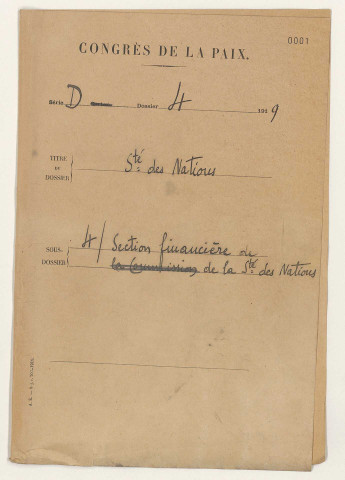 0001
CONGRÈS DE LA PAIX.
Série D Dossier 4 1919
TITRE DU DOSSIER
Sté des Nations
SOUS-DOSSIER
4/ Section financière de
la Commission de la Sté des Nations